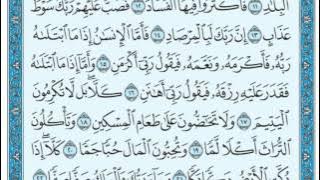 ٱلۡبِلَٰدِ ١١ فَأَكۡثَرُواْ فِيهَا ٱلۡفَسَادَ ١٢ فَصَبَّ عَلَيۡهِمۡ رَبُّكَ سَوۡطَ
عَذَابٍ ١٣ إِنَّ رَبَّكَ لَبِٱلۡمِرۡصَادِ ١٤ فَأَمَّا ٱلۡإِنسَٰنُ إِذَا مَا ٱبۡتَلَىٰهُ
رَبُّهُۥ فَأَكۡرَمَهُۥ وَنَعَّمَهُۥ فَيَقُولُ رَبِّيٓ أَكۡرَمَنِ ١٥ وَأَمَّآ إِذَا مَا ٱبۡتَلَىٰهُ
فَقَدَرَ عَلَيۡهِ رِزۡقَهُۥ فَيَقُولُ رَبِّيٓ أَهَٰنَنِ ١٦ كـَلَّاۖ بَل لَّا تُكۡرِمُونَ
ٱلۡيَتِيمَ ١٧ وَلَا تَحَٰٓضُّونَ عَلَىٰ طَعَامِ ٱلۡمِسۡكِينِ ١٨ وَتَأۡكُلُونَ
ٱلتُّرَاثَ أَكۡلٗا لَّمّٗا ١٩ وَتُحِبُّونَ ٱلۡمَالَ حُبّٗا جَمّٗا ٢٠ كـَلَّآۖ إِذَا